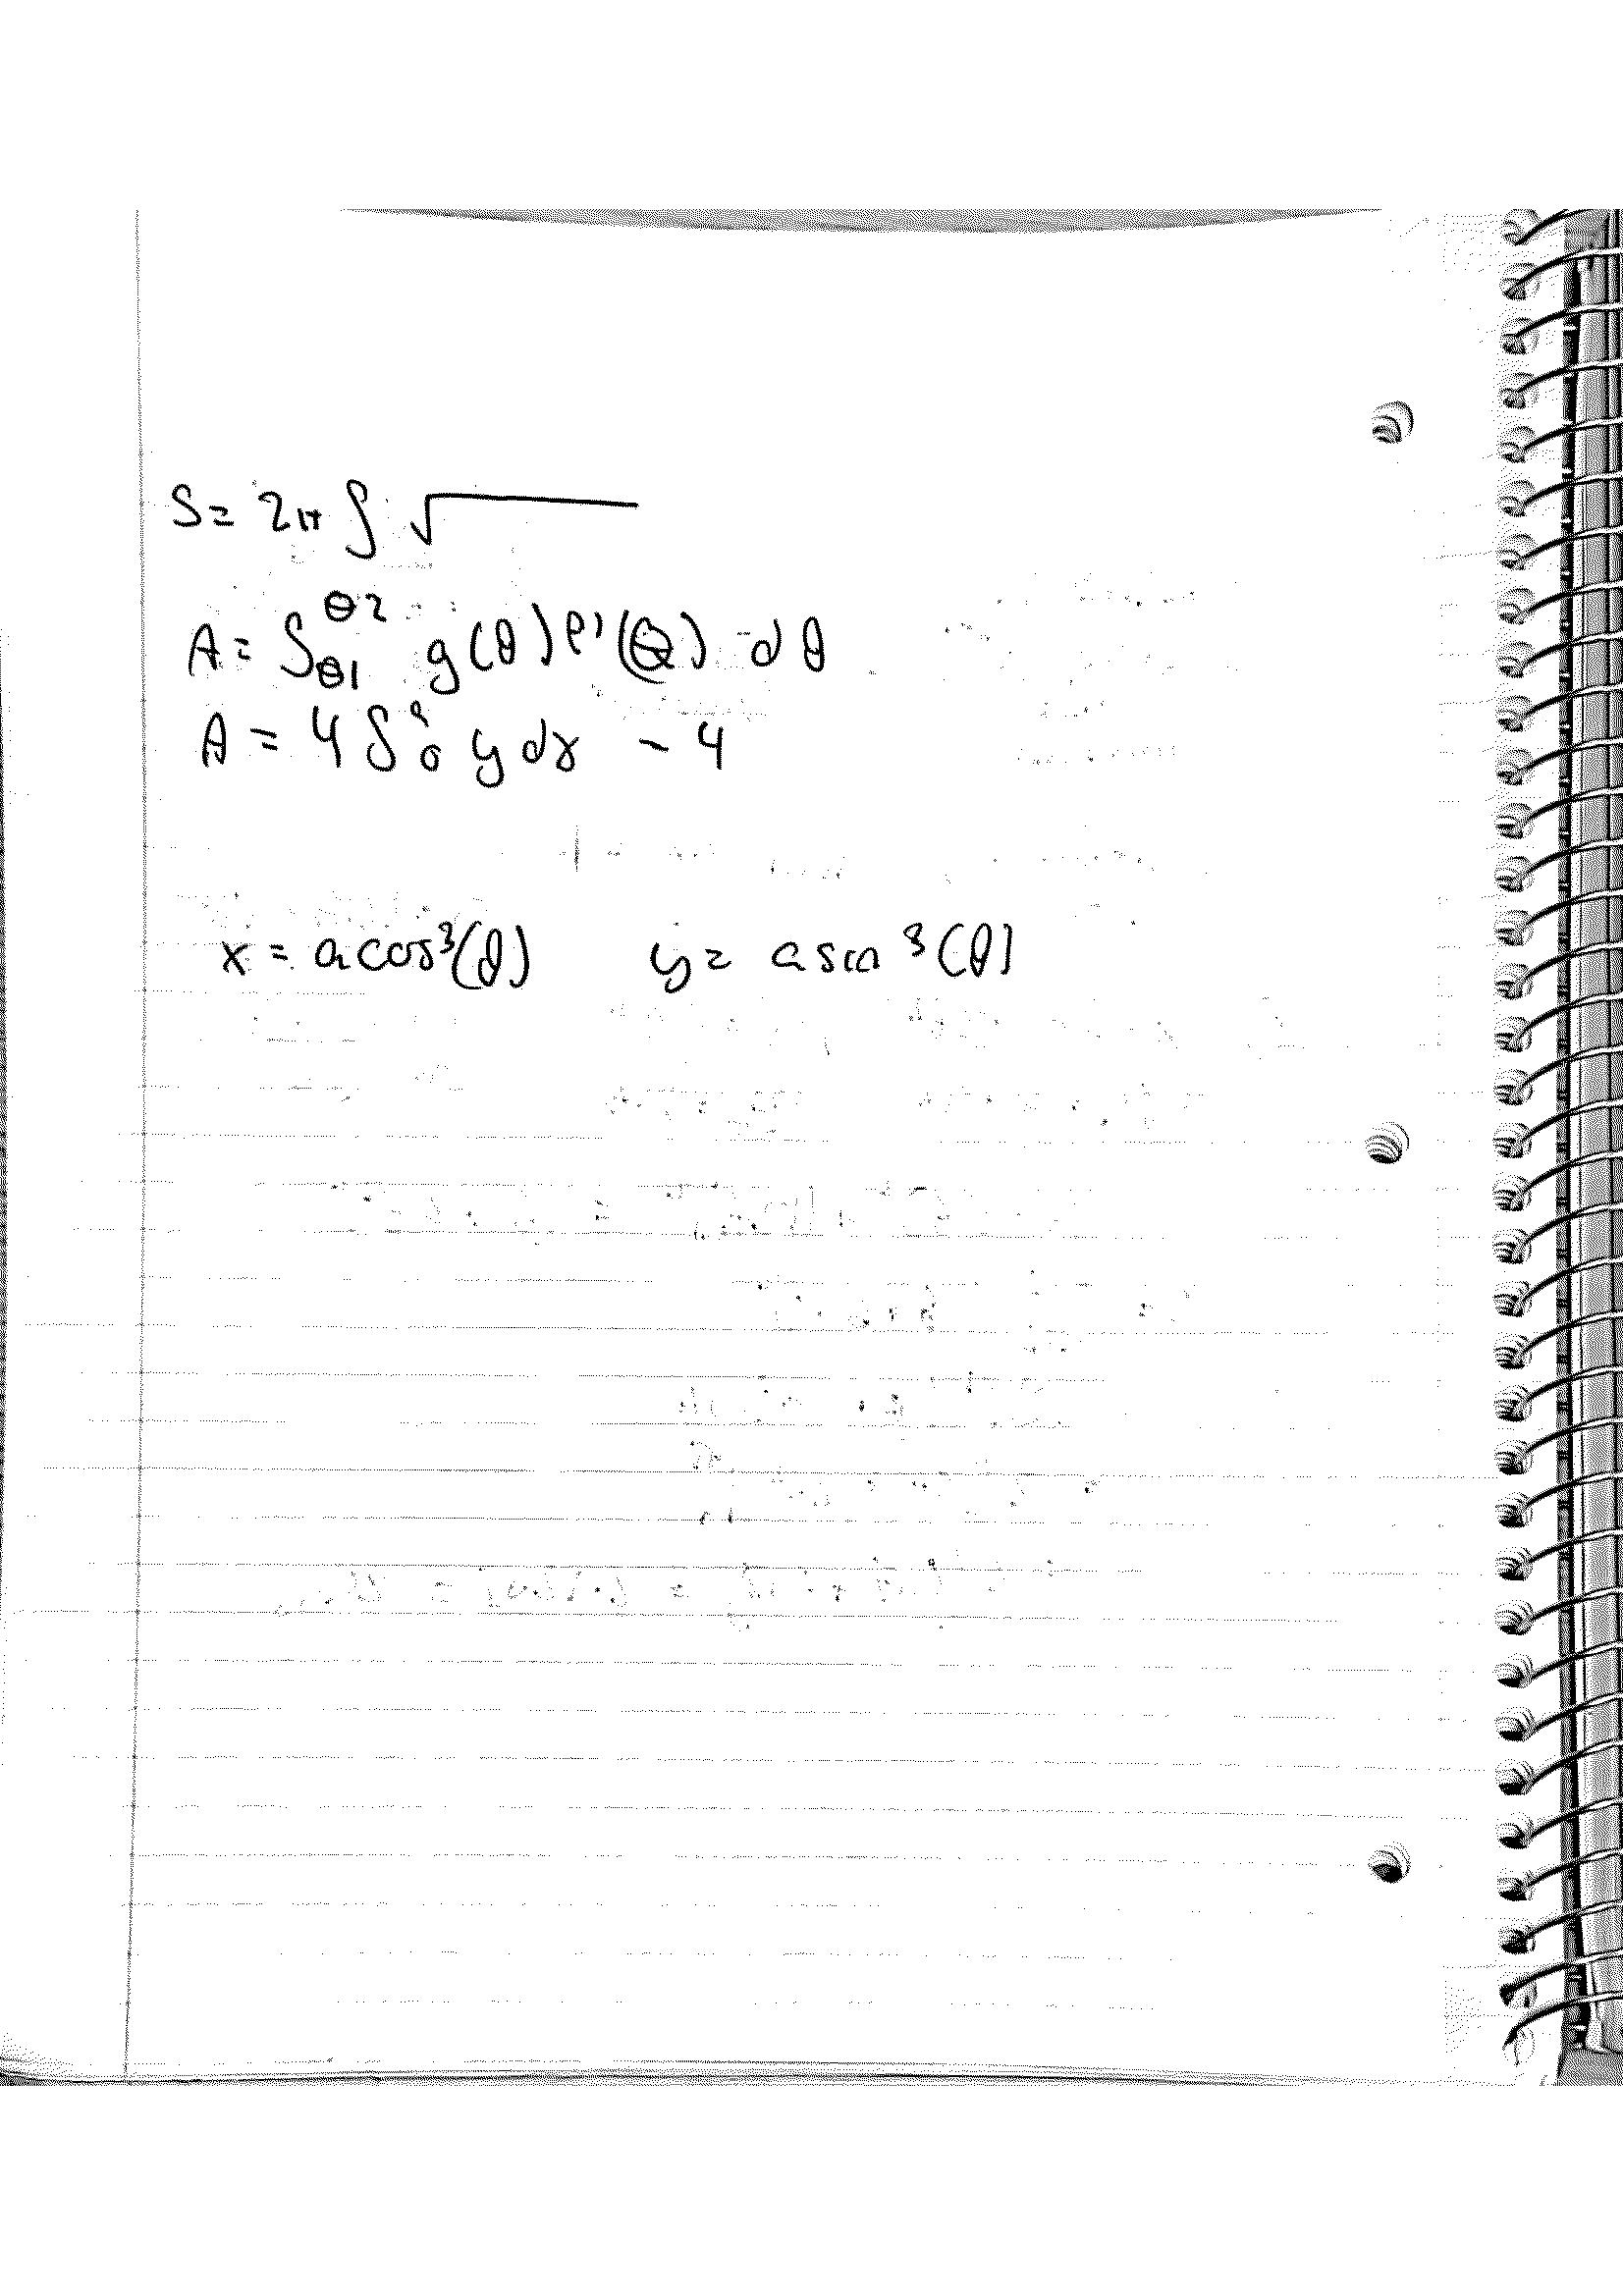 S = 2π ∫ √
A = ∫θ1^θ2 g(θ) f'(θ) dθ
A = 4 ∫0^a y dx - 4
x = a cos³(θ) y = a sin³(θ)